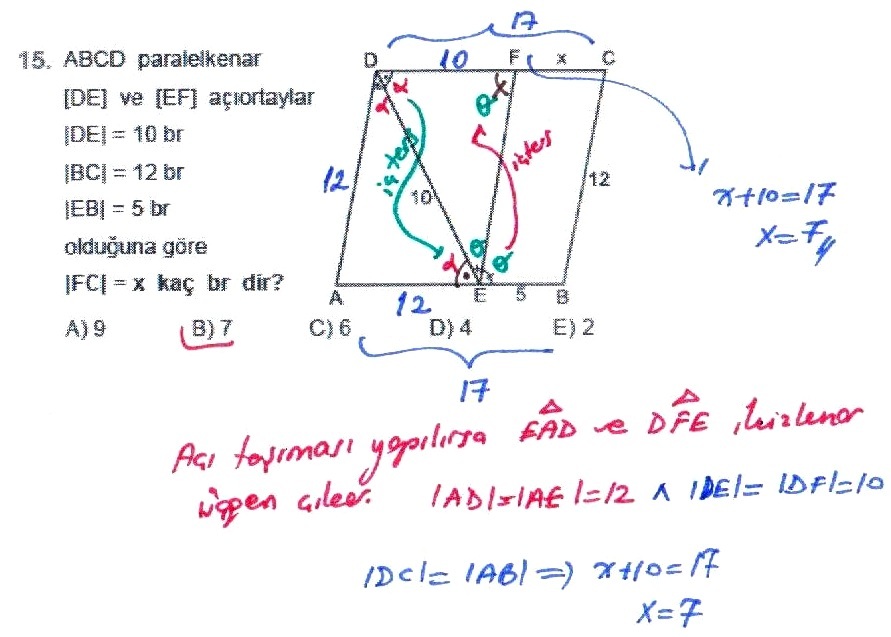 17
D 10 F x C
15. ABCD paralelkenar
[DE] ve [EF] açıortaylar
|DE| = 10 br
|BC| = 12 br
|EB| = 5 br
olduğuna göre
|FC| = x kaç br dir?
α α θ x
iç ters
içters
12 10 12
α θ θ
A 12 E 5 B
x+10=17
x=7
A) 9 B) 7 C) 6 D) 4 E) 2
17
Açı taşıması yapılırsa EAD ve DFE ikizkenar
üçgen çıkar. |AD|=|AE|=12 ∧ |DE|=|DF|=10
|DC|=|AB| ⇒ x+10=17
x=7